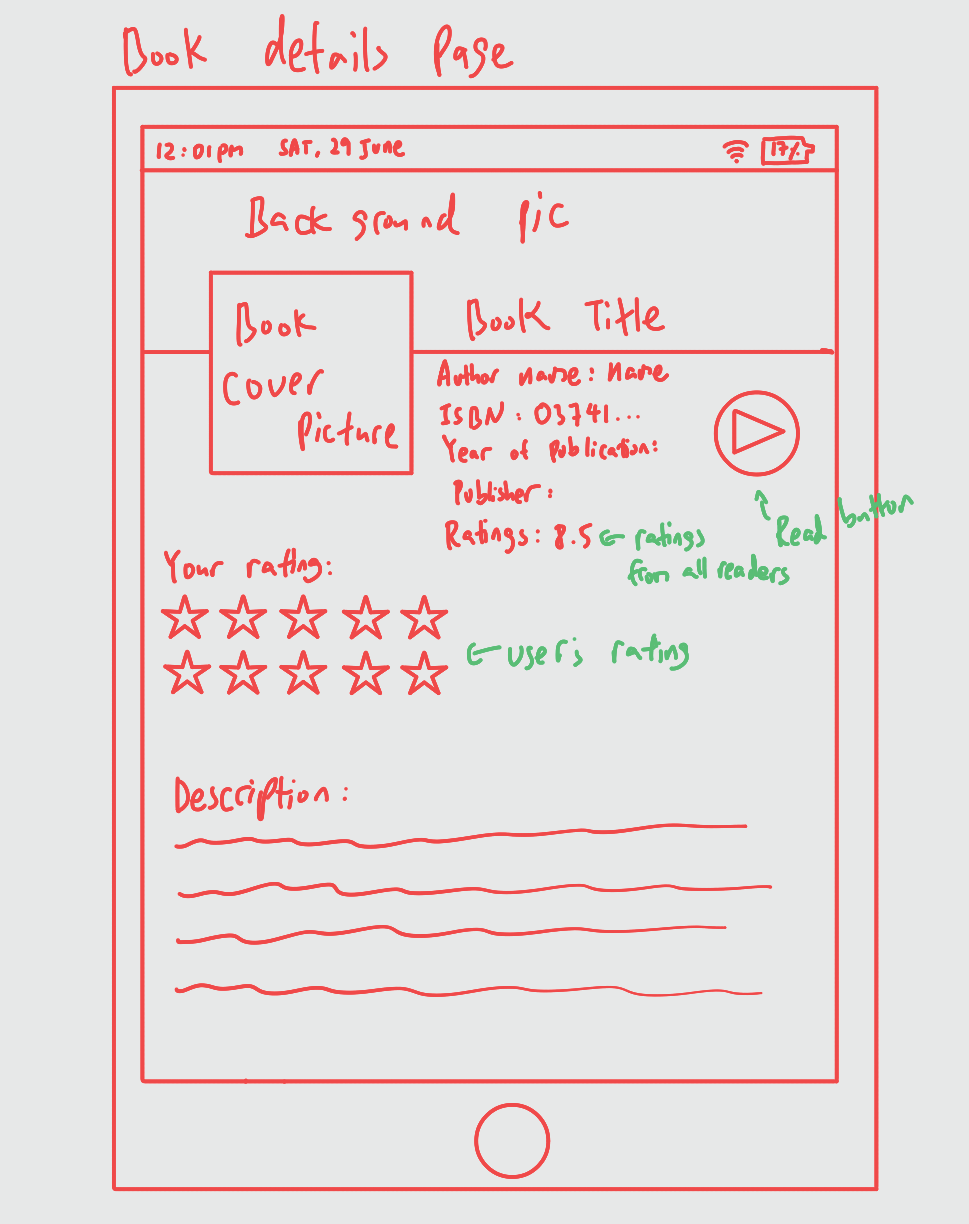 Book details Page
12:01pm SAT, 29 June 17%
Background pic
Book Title
Book
Cover
Picture
Author name: Name
ISBN: 03741...
Year of Publication:
Publisher:
Ratings: 8.5 ← ratings
from all readers
Read button
Your rating:
← user's rating
Description: